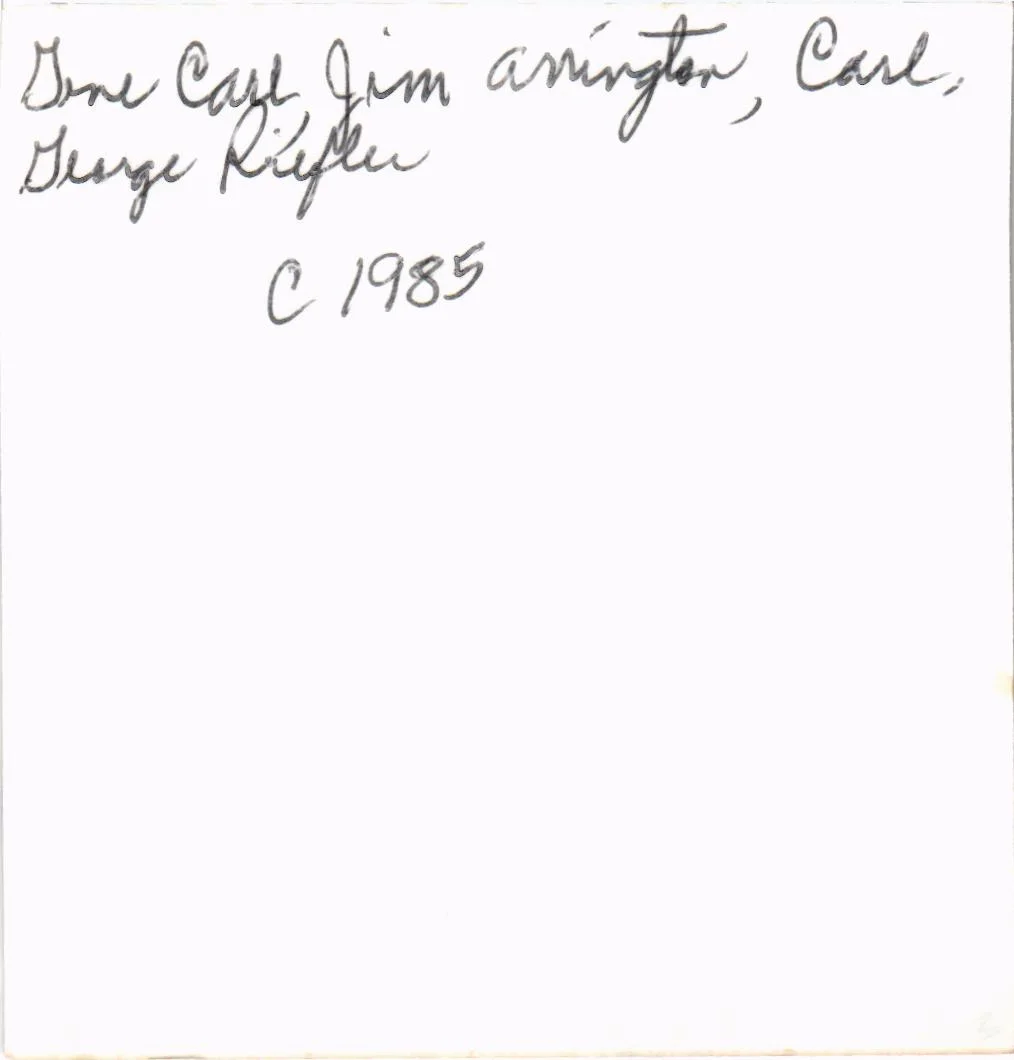 Gene Carl, Jim Arrington, Carl,
George Riefler
C 1985